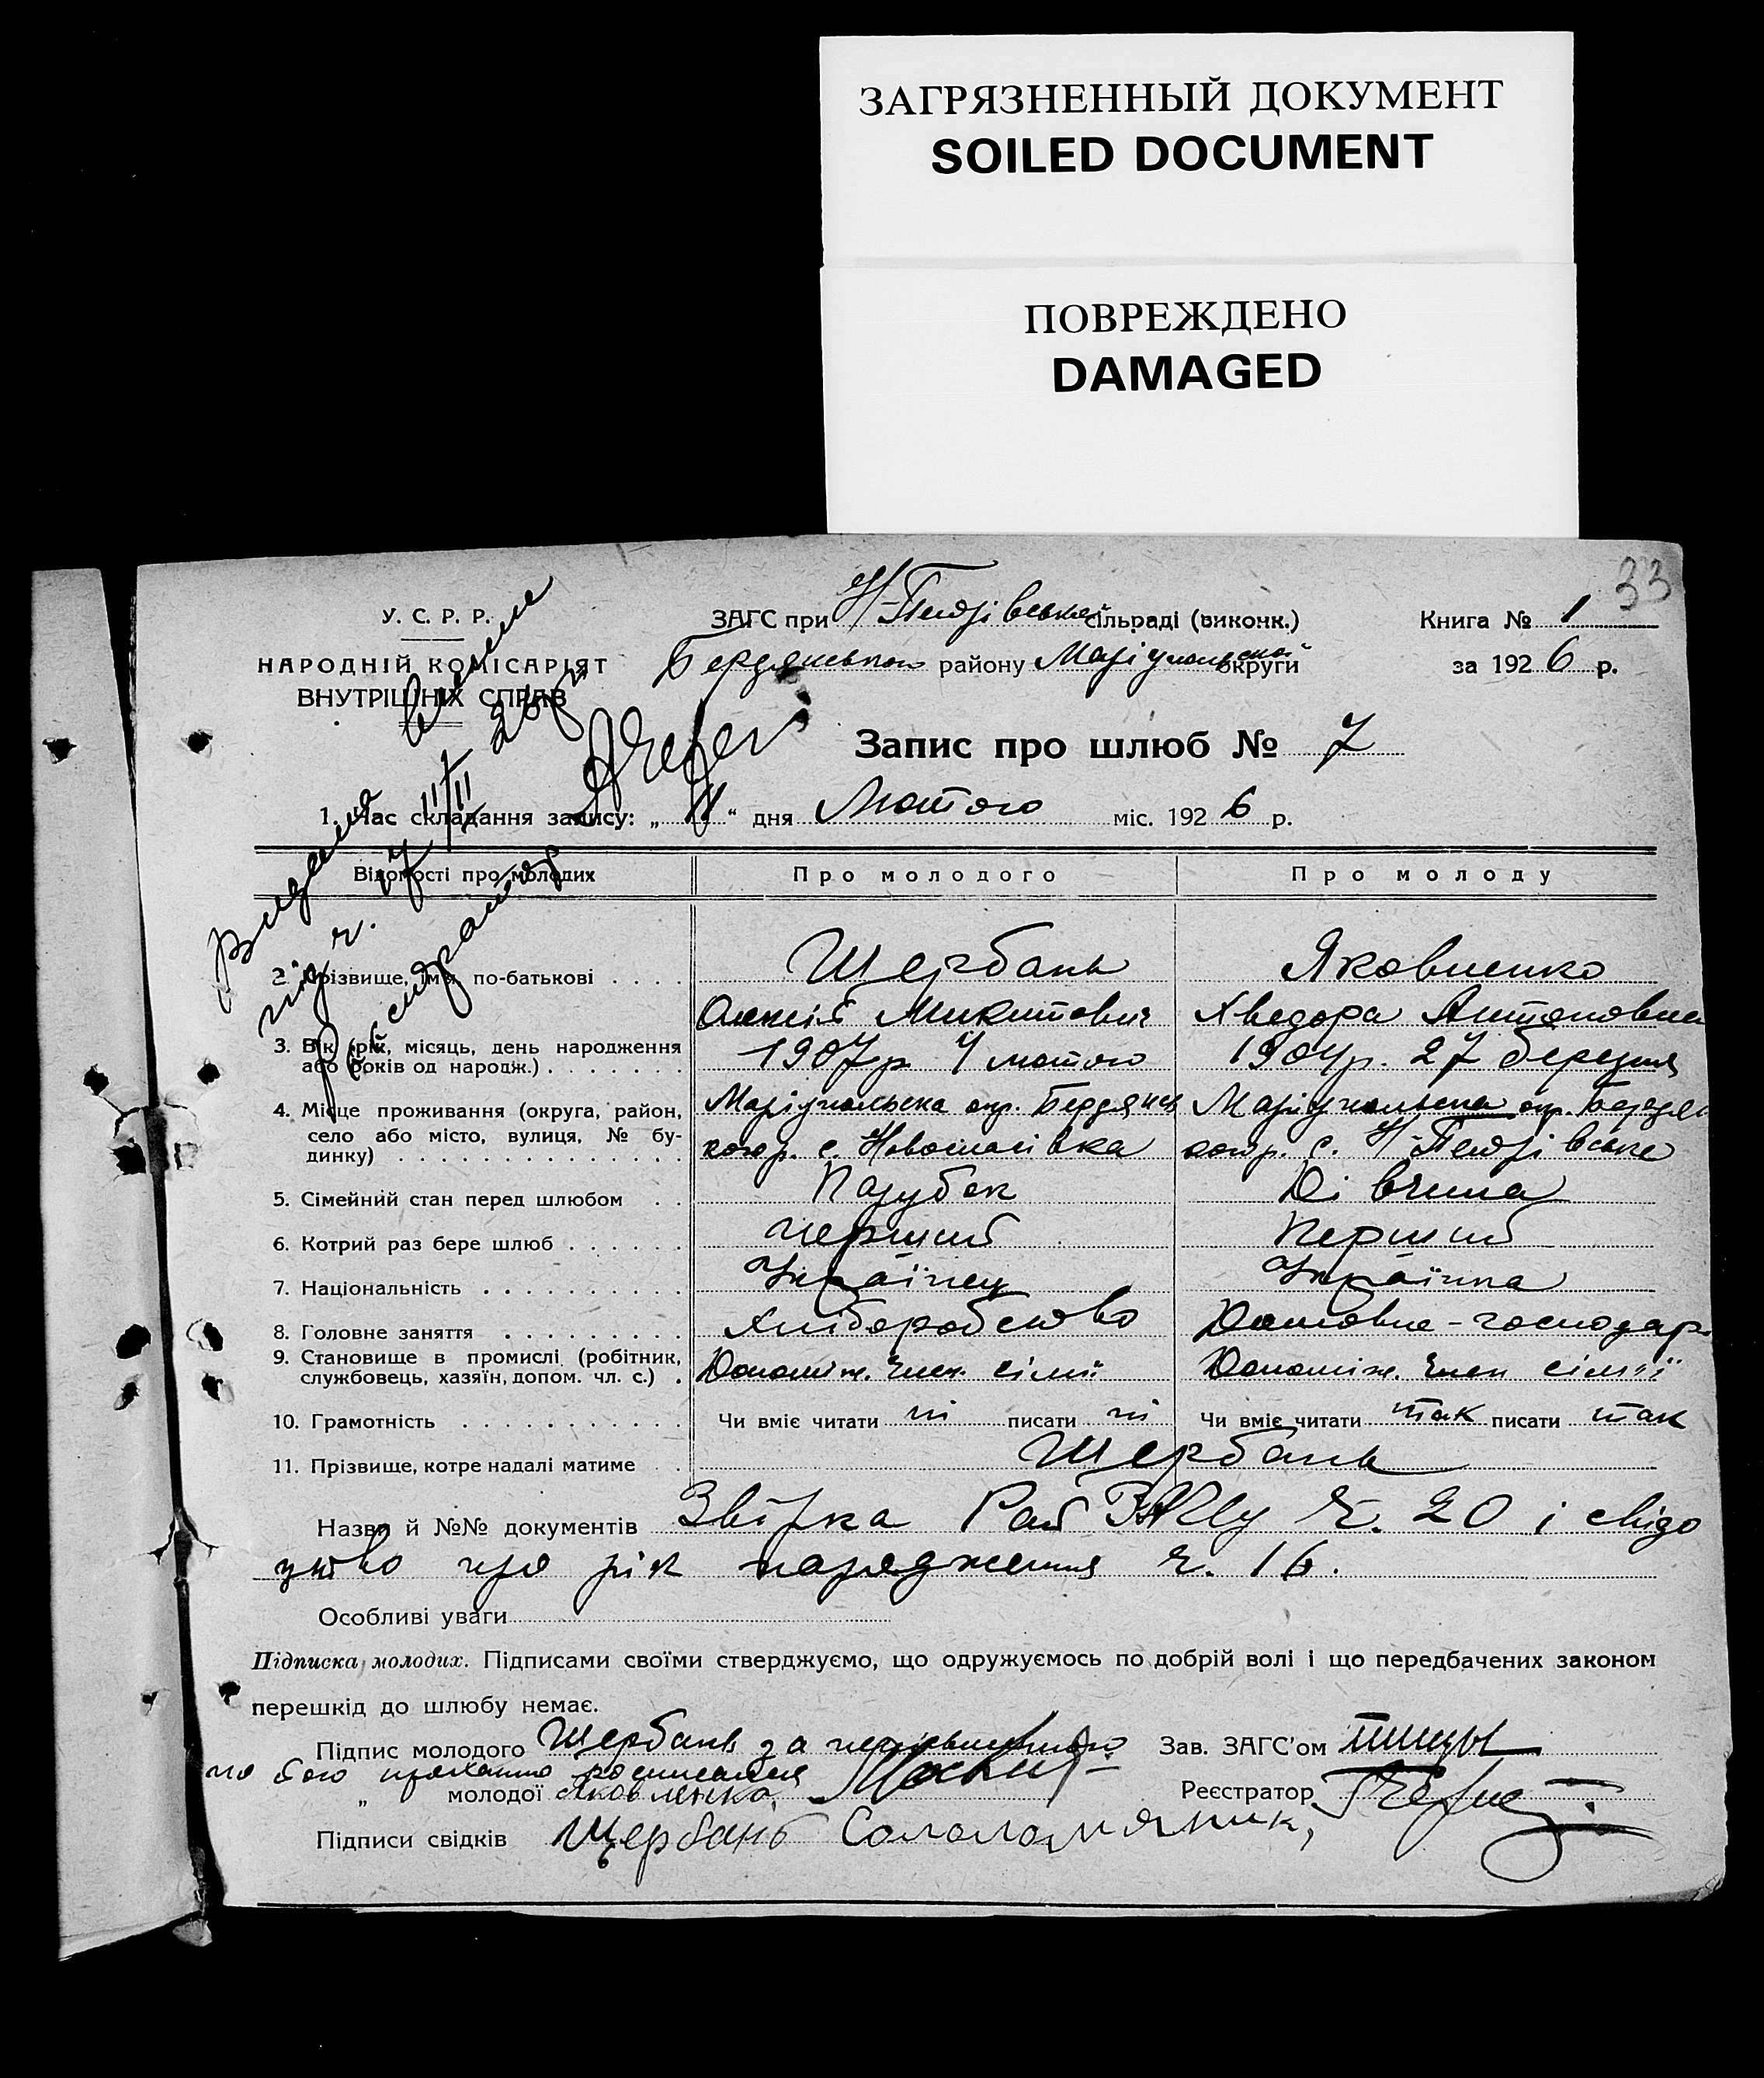 ЗАГРЯЗНЕННЫЙ ДОКУМЕНТ
SOILED DOCUMENT
ПОВРЕЖДЕНО
DAMAGED
33
У. С. Р. Р.
НАРОДНІЙ КОМІСАРІЯТ
ВНУТРІШНІХ СПРАВ
ЗАГС при Н-Петрівській сільраді (виконк.)
Бердянського району Маріупольської округи
Книга № 1
за 1926 р.
Запис про шлюб № 7
1. Час складання запису: „11“ дня Лютого міс. 1926 р.
Видана
під ч. 7 11/II 26 р.
Відомості про молодих
Про молодого
Про молоду
2. Прізвище, ім'я, по-батькові . . . . Щербань Яковленко
Олексій Микитович Хведора Антоновна
3. Вік (рік, місяць, день народження
або років од народж.) . . . . . . . 1907 р. 4 лютого 1904 р. 27 березня
4. Місце проживання (округа, район,
село або місто, вулиця, № бу-
динку) . . . . . . . . . . . . . .
Маріупольска окр. Бердянсь
кого р. с. Новоспасівка
Маріупольска окр. Бердян
кого р. с. Н-Петрівське
5. Сімейний стан перед шлюбом . . Парубок Дівчина
6. Котрий раз бере шлюб . . . . . . перший Перший
7. Національність . . . . . . . . . . Українец Українка
8. Головне заняття . . . . . . . . . Хліборобство Домовне-господар.
9. Становище в промислі (робітник,
службовець, хазяїн, допом. чл. с.) . Допоміж. член сімії Допоміж. член сімії
10. Грамотність . . . . . . . . . . . Чи вміє читати ні писати ні Чи вміє читати так писати так
11. Прізвище, котре надалі матиме . Щербань
Назви й №№ документів Звірка Рай ЗАГСу Ч. 20 і свідо
цтво про рік народження ч. 16.
Особливі уваги
Підписка молодих. Підписами своїми стверджуємо, що одружуємось по добрій волі і що передбачених законом
перешкід до шлюбу немає.
Підпис молодого Щербань за неписьменного
по його проханню росписался
„ молодої Яковленко
Зав. ЗАГС'ом
Реєстратор
Підписи свідків Щербань